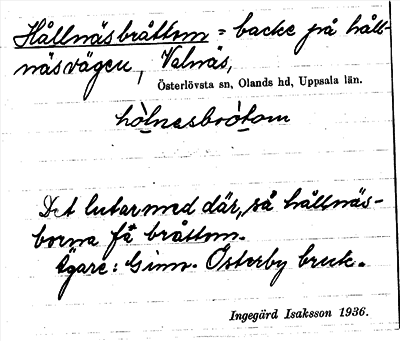 Hållnäsbråttom = backe på håll-
näsvägen, Valnäs,
Österlövsta sn, Olands hd, Uppsala län.
hòlnesbròtom
Det lutar med där, så hållnäs-
borna få bråttom.
Ägare: Gimo. Österby bruk.
Ingegärd Isaksson 1936.